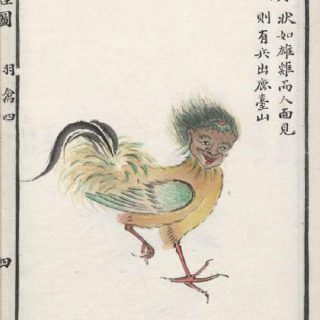 狀如雄雞而人面見
則有兵出鹿臺山
圖 羽禽四
四